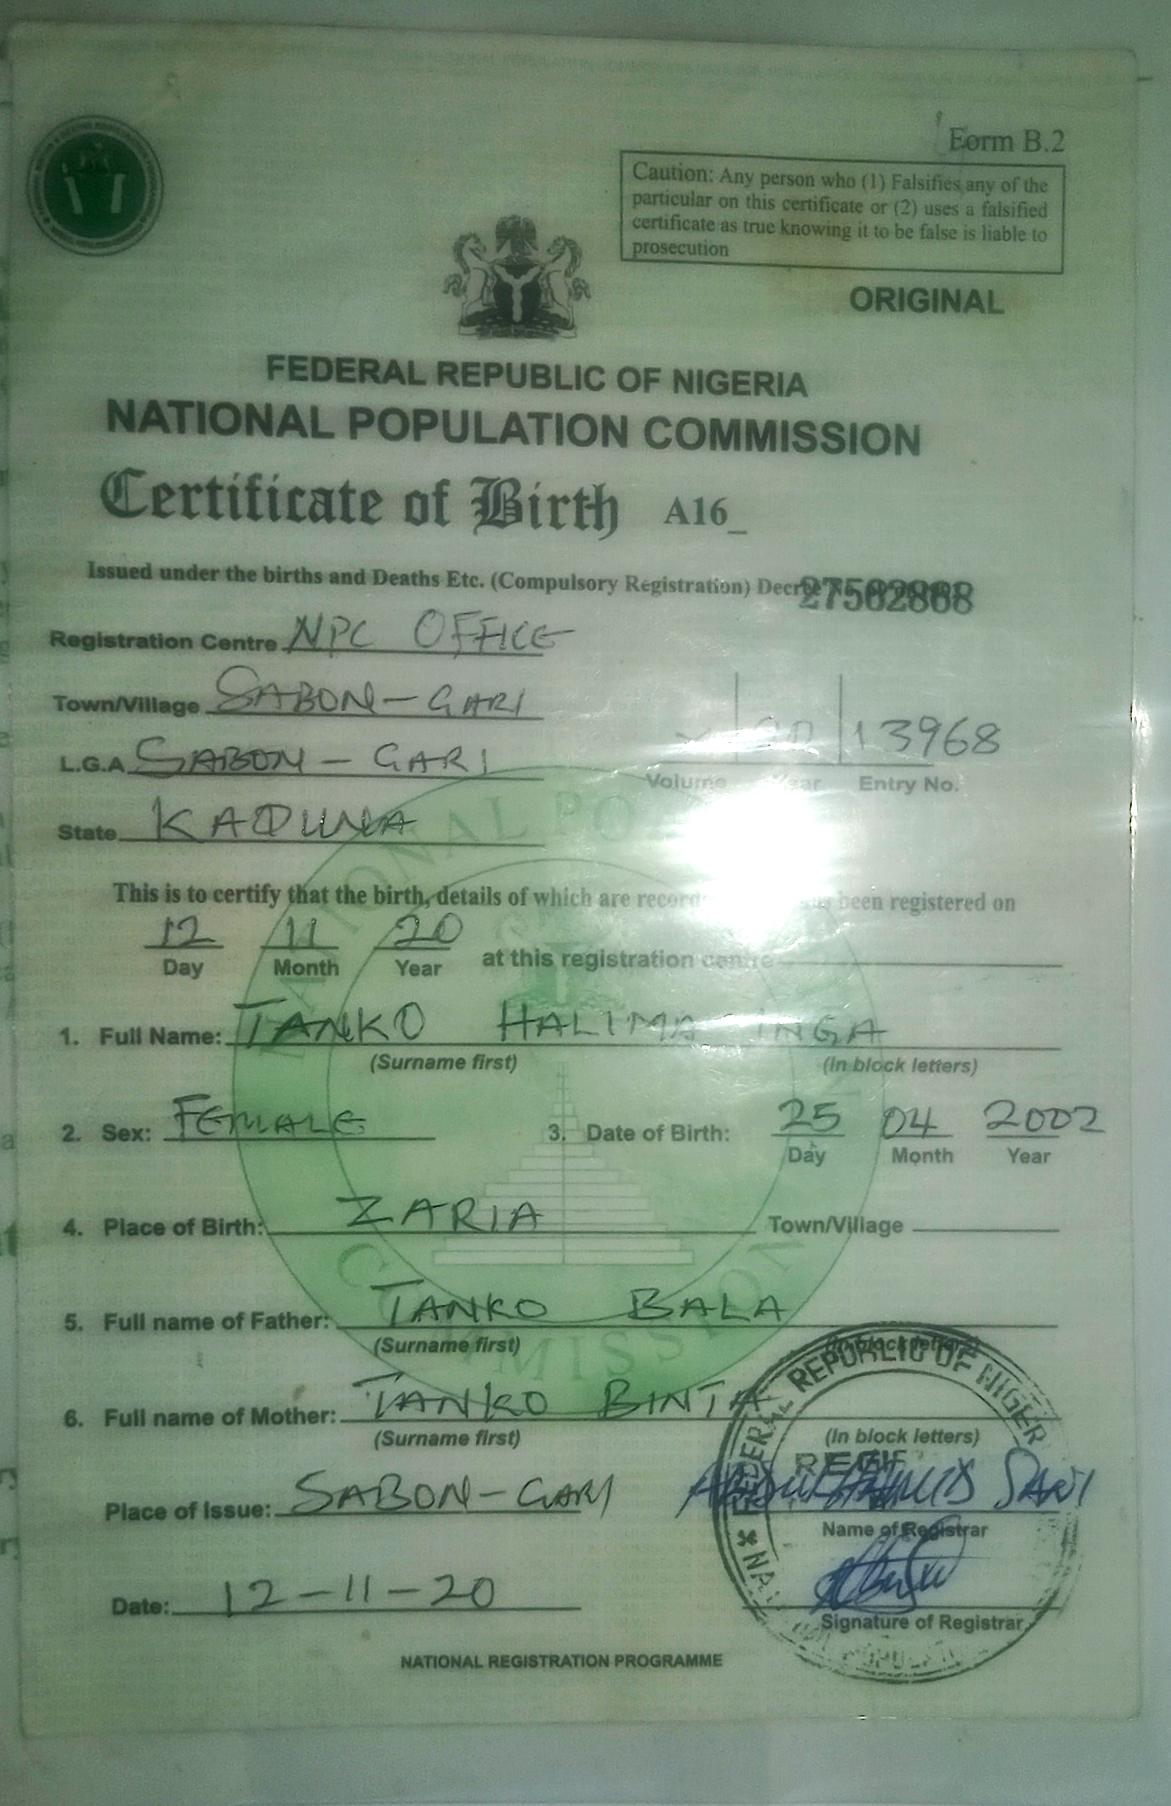 Form B.2
Caution: Any person who (1) Falsifies any of the
particular on this certificate or (2) uses a falsified
certificate as true knowing it to be false is liable to
prosecution
ORIGINAL
FEDERAL REPUBLIC OF NIGERIA
NATIONAL POPULATION COMMISSION
Certificate of Birth A16_
Issued under the births and Deaths Etc. (Compulsory Registration)
Registration Centre NPC OFFICE
Town/Village SABON-GARI
L.G.A. SABON-GARI
13968
Volume Year Entry No.
State KADUNA
This is to certify that the birth, details of which are been registered on
12 11 20
Day Month Year at this registration centre
1. Full Name: TANKO HALIMA
(Surname first) (In block letters)
2. Sex: FEMALE 3. Date of Birth: 25 04 2002
Day Month Year
4. Place of Birth: ZARIA Town/Village
5. Full name of Father: TANKO BALA
(Surname first) (In block letters)
6. Full name of Mother: TANKO BINTA
(Surname first) (In block letters)
Place of Issue: SABON-GARI SANI
Name of Registrar
Date: 12-11-20
Signature of Registrar
NATIONAL REGISTRATION PROGRAMME
NATIONAL POPULATION COMMISSION
FEDERAL REPUBLIC OF NIGERIA